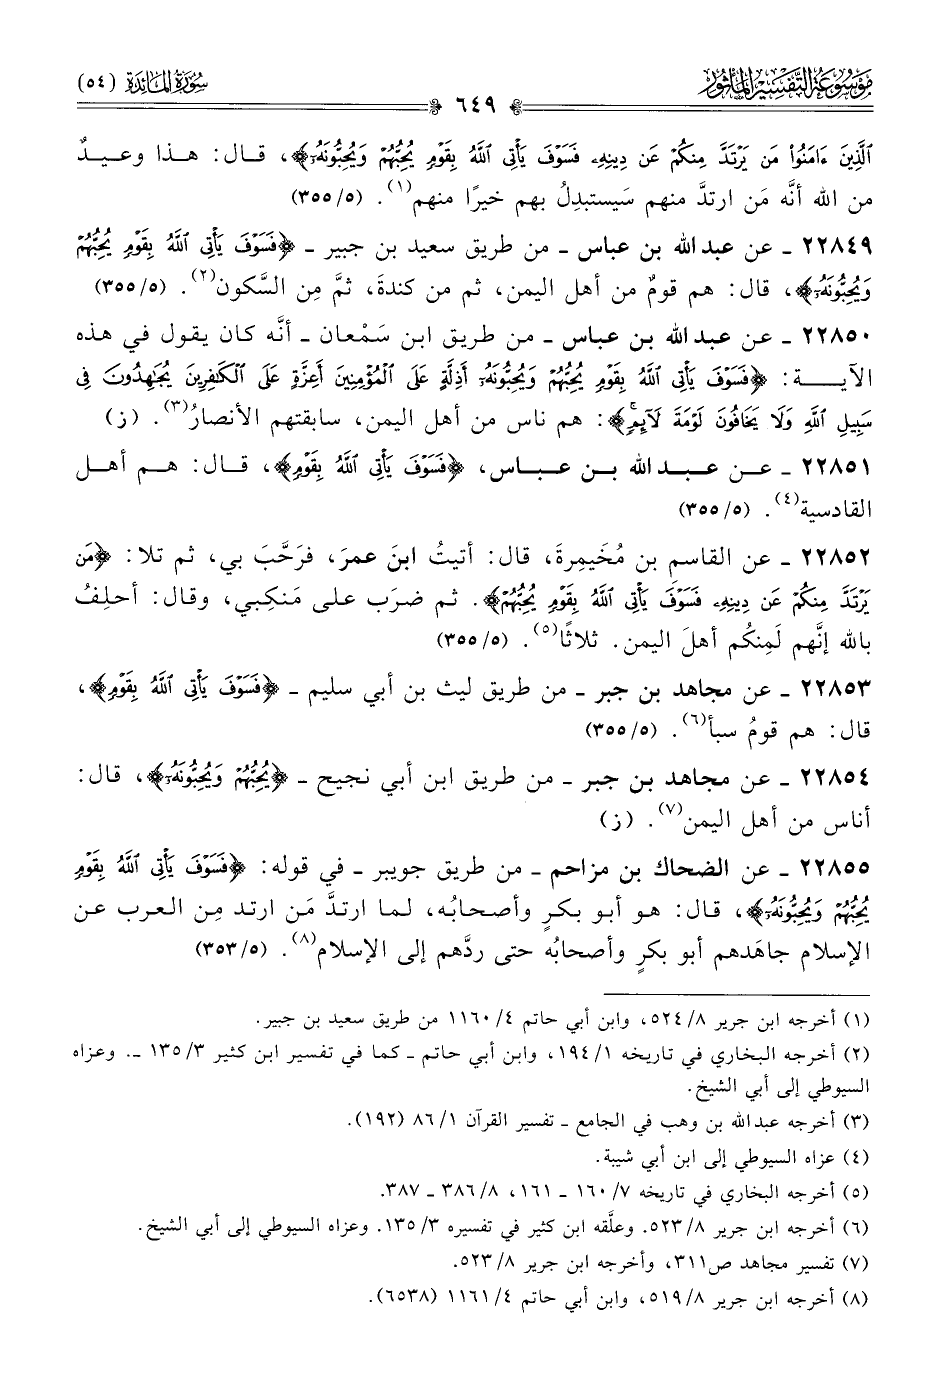 مَوْسُوعَةُ التَّفْسِيرِ المَأْثُورِ
٦٤٩
سُورَةُ المَائِدَة (٥٤)
ٱلَّذِينَ ءَامَنُوا۟ مَن يَرْتَدَّ مِنكُمْ عَن دِينِهِۦ فَسَوْفَ يَأْتِى ٱللَّهُ بِقَوْمٍ يُحِبُّهُمْ وَيُحِبُّونَهُۥٓ﴾، قال: هذا وعيدٌ
من الله أنَّه مَن ارتدَّ منهم سَيستبدِلُ بهم خيرًا منهم(١). (٥/ ٣٥٥)
٢٢٨٤٩ ـ عن عبد الله بن عباس ـ من طريق سعيد بن جبير ـ ﴿فَسَوْفَ يَأْتِى ٱللَّهُ بِقَوْمٍ يُحِبُّهُمْ
وَيُحِبُّونَهُۥٓ﴾، قال: هم قومٌ من أهل اليمن، ثم من كندةَ، ثمَّ مِن السَّكون(٢). (٥/ ٣٥٥)
٢٢٨٥٠ ـ عن عبد الله بن عباس ـ من طريق ابن سَمْعان ـ أنَّه كان يقول في هذه
الآيـة: ﴿فَسَوْفَ يَأْتِى ٱللَّهُ بِقَوْمٍ يُحِبُّهُمْ وَيُحِبُّونَهُۥٓ أَذِلَّةٍ عَلَى ٱلْمُؤْمِنِينَ أَعِزَّةٍ عَلَى ٱلْكَـٰفِرِينَ يُجَـٰهِدُونَ فِى
سَبِيلِ ٱللَّهِ وَلَا يَخَافُونَ لَوْمَةَ لَآئِمٍۚ﴾: هم ناس من أهل اليمن، سابقتهم الأنصارُ(٣). (ز)
٢٢٨٥١ ـ عـن عبـد الله بـن عبـاس، ﴿فَسَوْفَ يَأْتِى ٱللَّهُ بِقَوْمٍ﴾، قـال: هـم أهل
القادسية(٤). (٥/ ٣٥٥)
٢٢٨٥٢ ـ عن القاسم بن مُخَيمِرةَ، قال: أتيتُ ابنَ عمرَ، فرَحَّبَ بي، ثم تلا: ﴿مَن
يَرْتَدَّ مِنكُمْ عَن دِينِهِۦ فَسَوْفَ يَأْتِى ٱللَّهُ بِقَوْمٍ يُحِبُّهُمْ﴾. ثم ضرَب على مَنكِبي، وقال: أحلِفُ
بالله إنَّهم لَمِنكُم أهلَ اليمن. ثلاثًا(٥). (٥/ ٣٥٥)
٢٢٨٥٣ ـ عن مجاهد بن جبر ـ من طريق ليث بن أبي سليم ـ ﴿فَسَوْفَ يَأْتِى ٱللَّهُ بِقَوْمٍ﴾،
قال: هم قومُ سبأ(٦). (٥/ ٣٥٥)
٢٢٨٥٤ ـ عن مجاهد بن جبر ـ من طريق ابن أبي نجيح ـ ﴿يُحِبُّهُمْ وَيُحِبُّونَهُۥٓ﴾، قال:
أناس من أهل اليمن(٧). (ز)
٢٢٨٥٥ ـ عن الضحاك بن مزاحم ـ من طريق جويبر ـ في قوله: ﴿فَسَوْفَ يَأْتِى ٱللَّهُ بِقَوْمٍ
يُحِبُّهُمْ وَيُحِبُّونَهُۥٓ﴾، قال: هو أبو بكرٍ وأصحابُه، لما ارتدَّ مَن ارتد مِن العرب عن
الإسلام جاهَدهم أبو بكرٍ وأصحابُه حتى ردَّهم إلى الإسلام(٨). (٥/ ٣٥٣)
(١) أخرجه ابن جرير ٨/ ٥٢٤، وابن أبي حاتم ٤/ ١١٦٠ من طريق سعيد بن جبير.
(٢) أخرجه البخاري في تاريخه ١/ ١٩٤، وابن أبي حاتم ـ كما في تفسير ابن كثير ٣/ ١٣٥ ـ. وعزاه
السيوطي إلى أبي الشيخ.
(٣) أخرجه عبد الله بن وهب في الجامع ـ تفسير القرآن ١/ ٨٦ (١٩٢).
(٤) عزاه السيوطي إلى ابن أبي شيبة.
(٥) أخرجه البخاري في تاريخه ٧/ ١٦٠ ـ ١٦١، ٨/ ٣٨٦ ـ ٣٨٧.
(٦) أخرجه ابن جرير ٨/ ٥٢٣. وعلَّقه ابن كثير في تفسيره ٣/ ١٣٥. وعزاه السيوطي إلى أبي الشيخ.
(٧) تفسير مجاهد ص٣١١، وأخرجه ابن جرير ٨/ ٥٢٣.
(٨) أخرجه ابن جرير ٨/ ٥١٩، وابن أبي حاتم ٤/ ١١٦١ (٦٥٣٨).